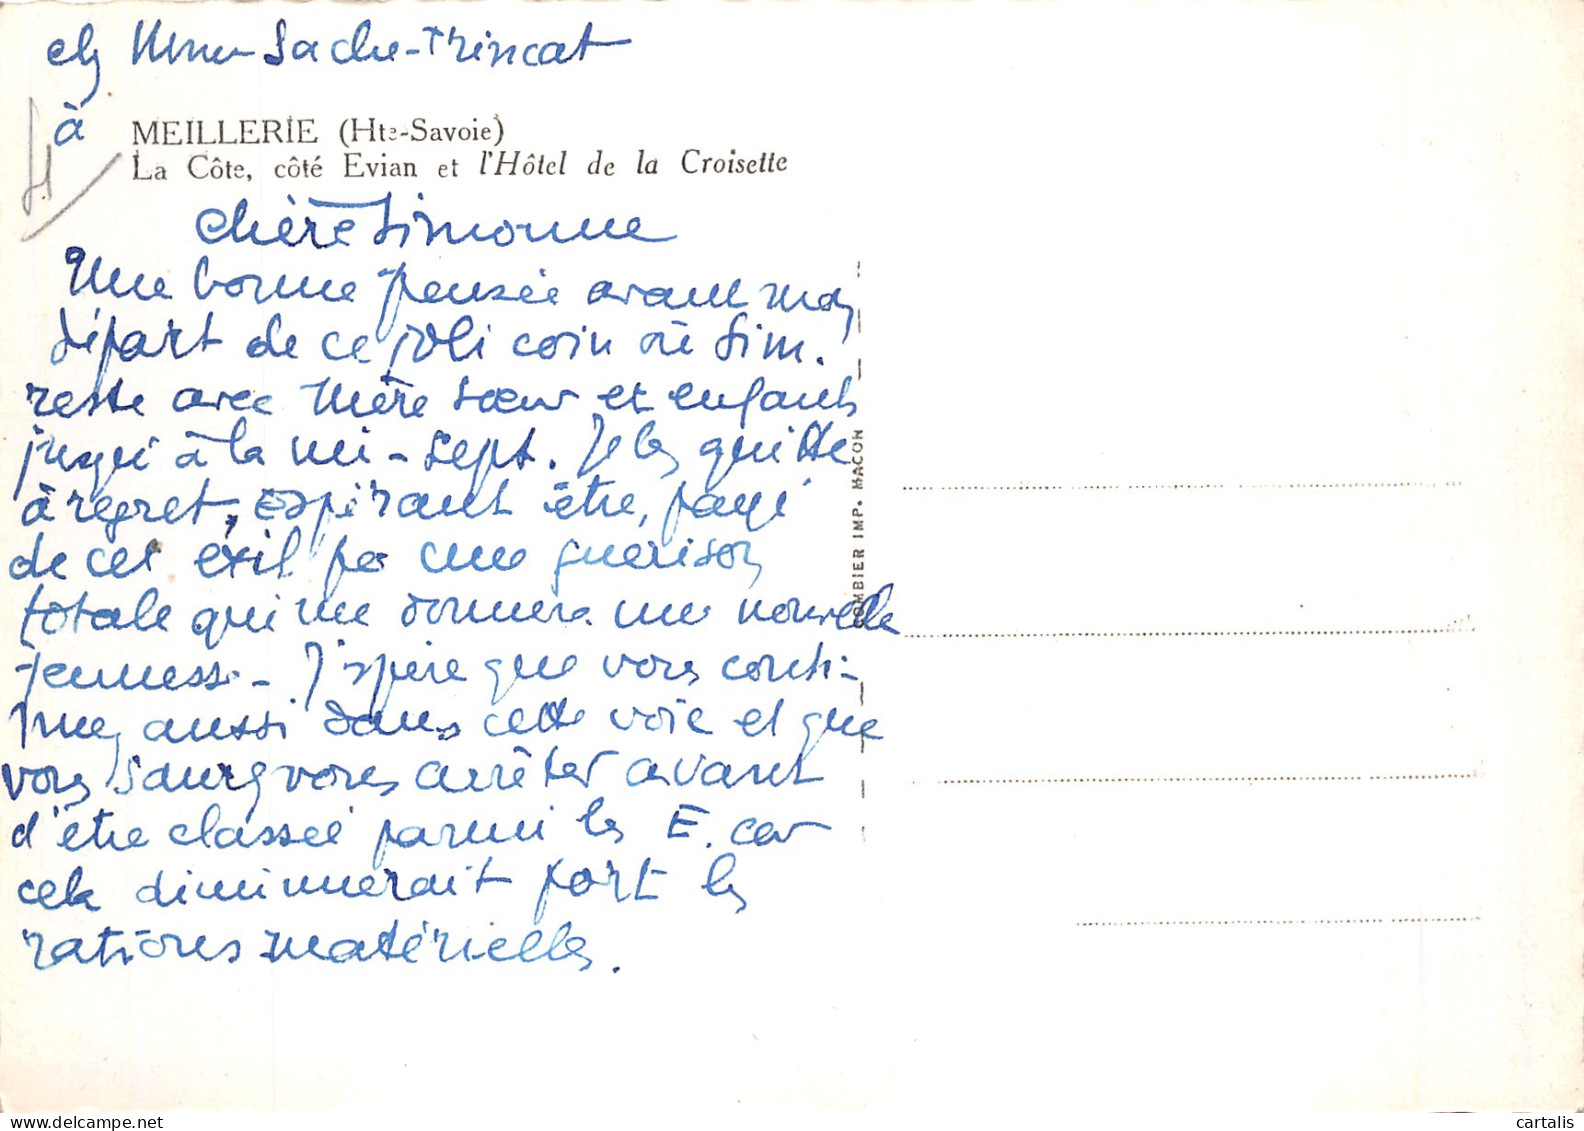 chz Mme Sache-Trincat
à MEILLERIE (Hte-Savoie)
La Côte, côté Evian et l'Hôtel de la Croisette
chère Simonne
Une bonne pensée avant mon
départ de ce joli coin où Sim.
reste avec Mère sœur et enfants
jusqu'à la mi-sept. Je les quitte
à regret, espérant être, payé
de cet exil par une guérison
totale qui me donnera une nouvelle
jeunesse - J'espère que vous conti-
nuez aussi dans cette voie et que
vous saurez vous arrêter avant
d'être classée parmi les E. car
cela diminuerait fort les
rations matérielles.
COMBIER IMP. MACON
cartalis